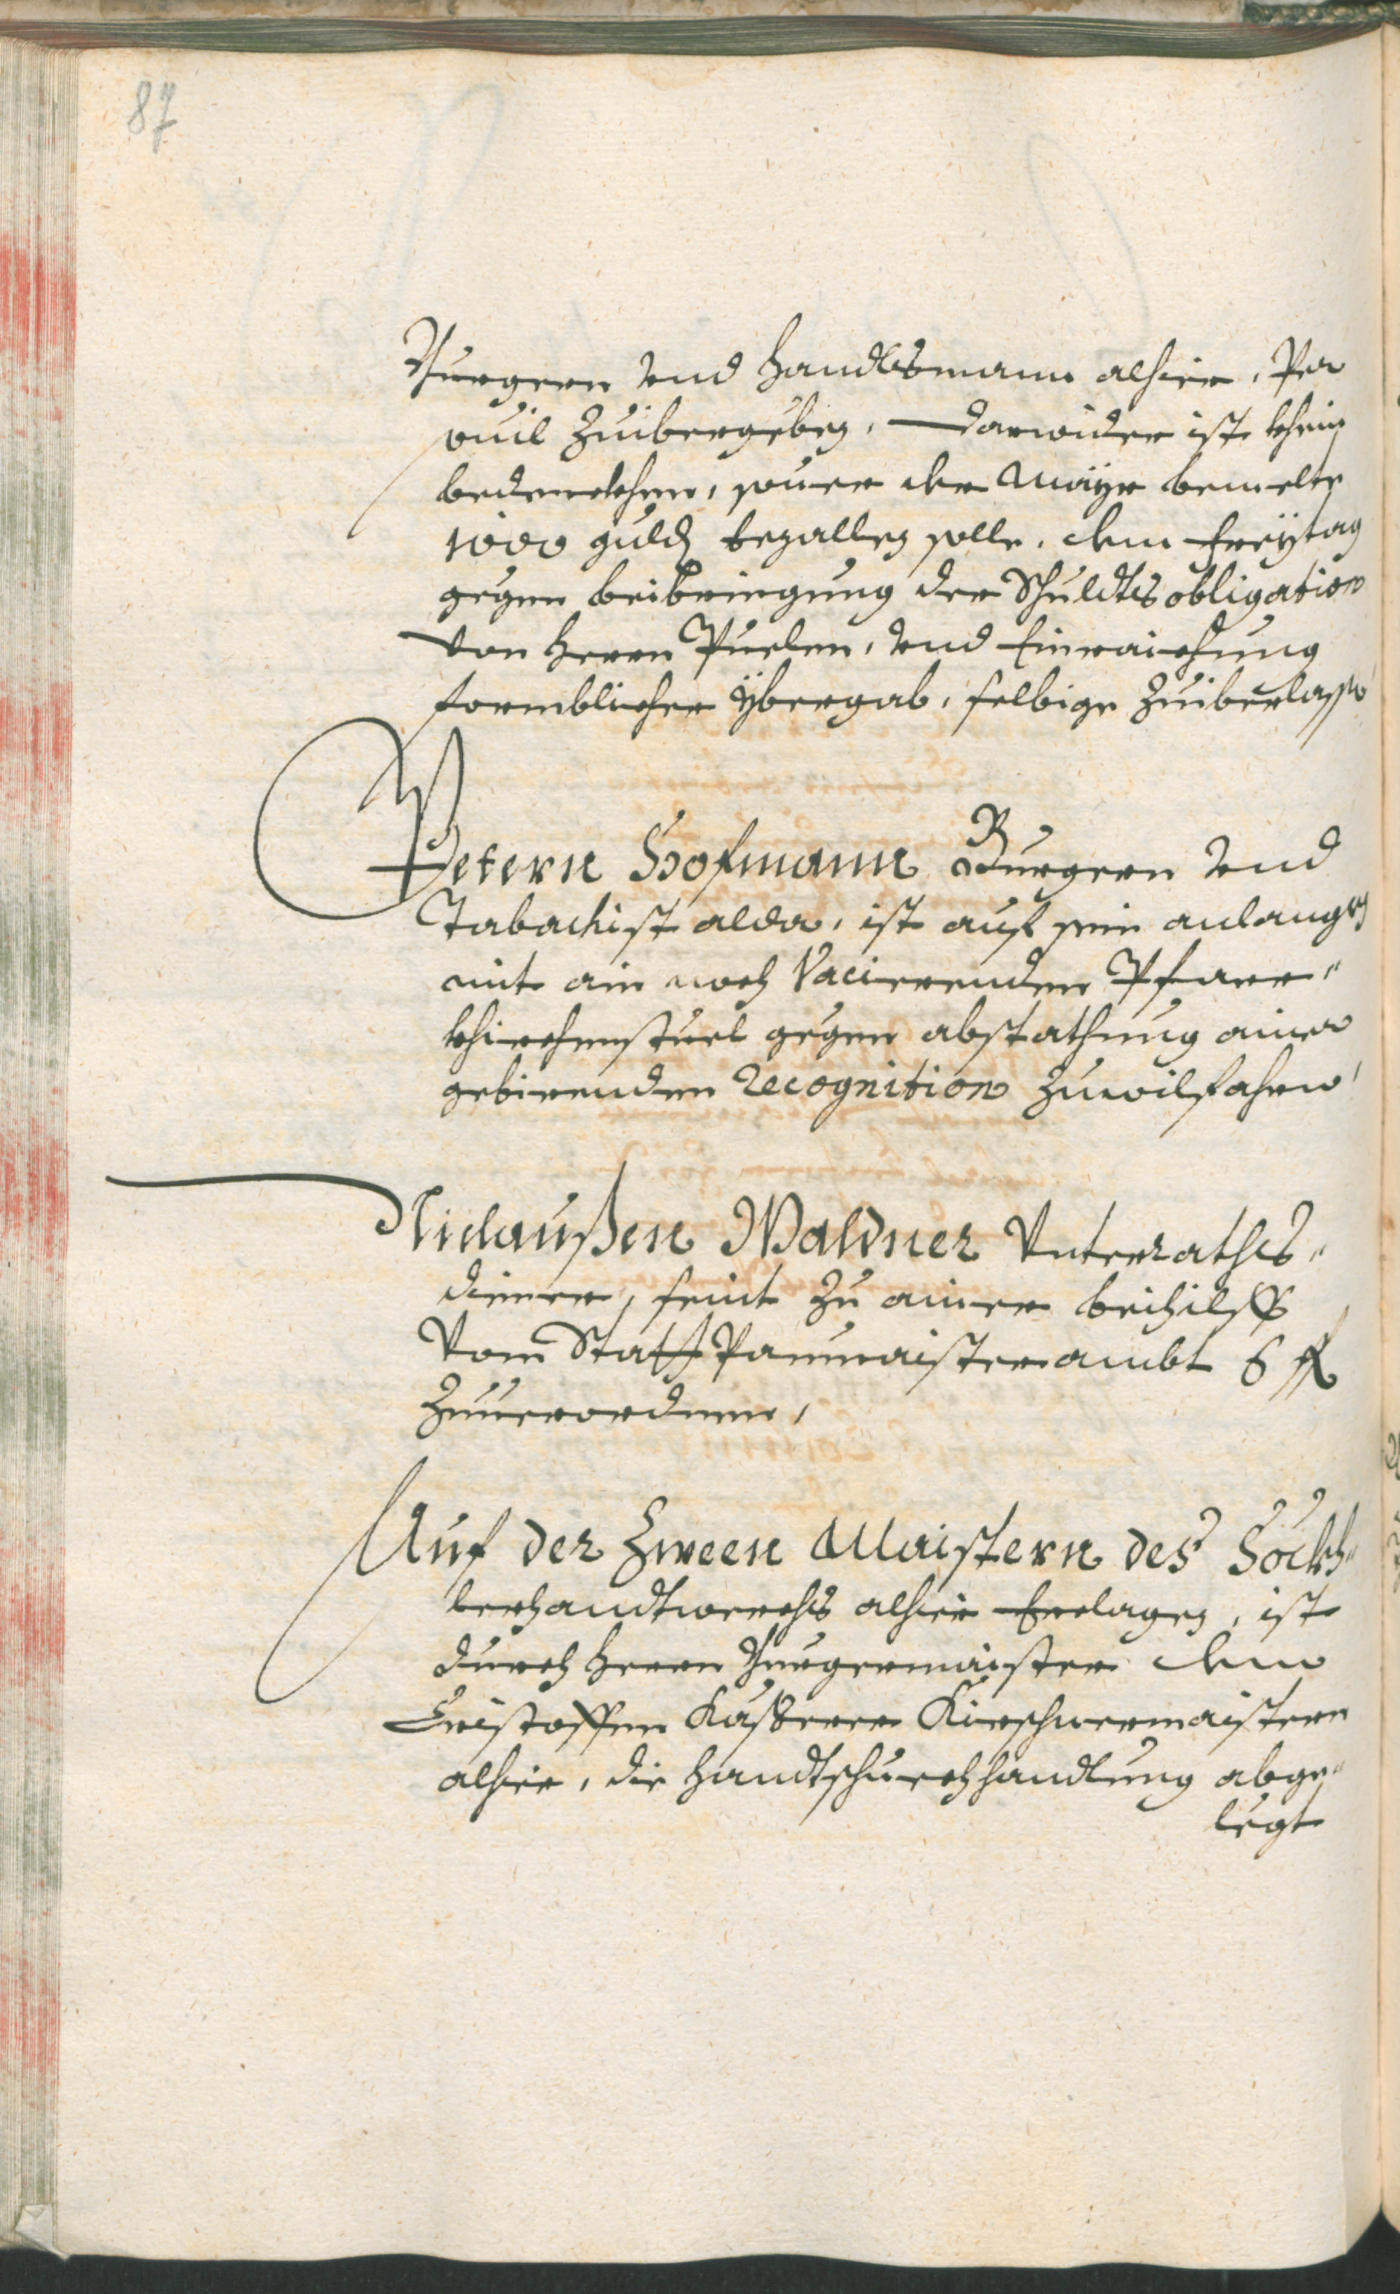 87
Burgern vnd Handlsmann alhier, Per
souil Zuibergeben, darwider ist khein
bedenkhen, souer der Mayr bemelte
1000 guld bezallen solle, dem Freytag
gegen beibringung der Schuldts obligation
von Herrn Puelen, vnd Einraichung
formblicher ybergab, selbige Zuiberlassen
Petern Hofmann Burgern vnd
Tabachist alda, ist auf sein anlangen
mit ain noch Vacierenden Pfarr-
khirchenstuel gegen abstathung ainer
gebirenden Recognition Zuwilfahren
Niclaußen Waldner Vnterraths-
diener, seint Zu ainer beihilff
Vom Statt Paumaisterambt 6 fl
Zuuerordnen,
Auf der Zween Maistern des Söckh-
lerhandtwerchs alhier Erclagen, ist
durch Herrn Burgermaister dem
Cristoffen Kürschnermaistern
alhier, die Handtschuechhandlung abge-
legt